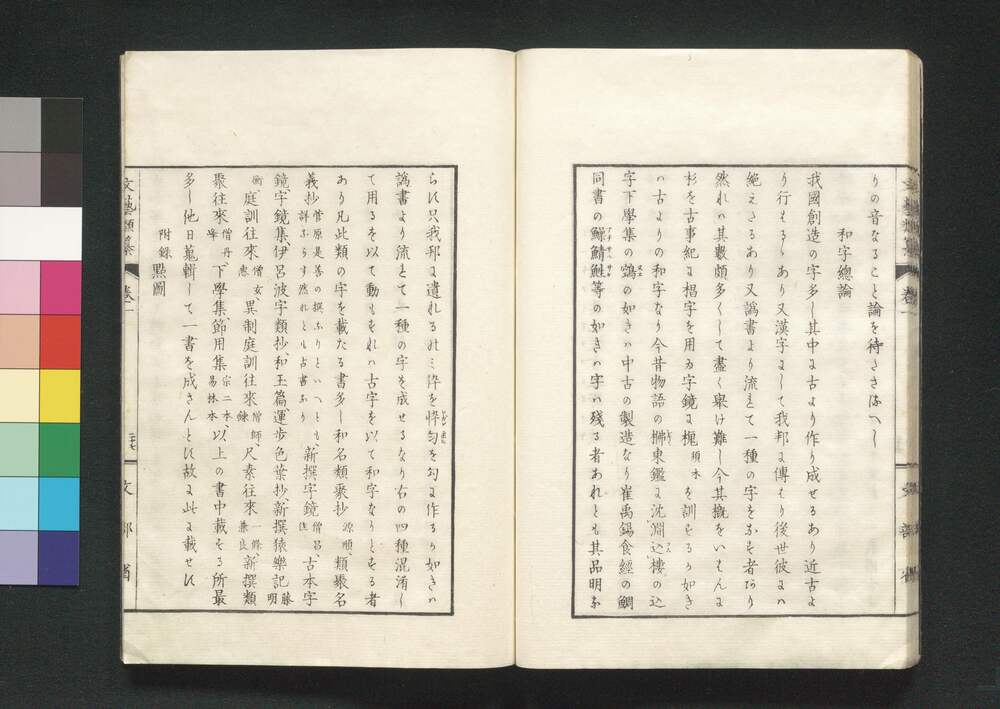 りの音なること論を待さるなへし
和字總論
我國創造の字多し其中に古より作り成せるあり近古よ
り行もるゝあり又漢字にして我邦に傳もり後世彼には
絶えたるあり又譌書より流れて一種の字をなす者あり
然れハ其數頗多くして盡く舉け難し今其概をいもんに
杉を古事紀に椙字を用ゐ字鏡に榥須木を訓せるか如き
ハ古よりの和字なり今昔物語の 東鑑に沈淵込樓の込
字下學集の鵼の如きハ中古の製造なり崔禹錫食經の鯛
同書の 鯖鮏等の如きハ字ハ殘る者あれとも其品明な
らす只我邦に遺れるのミ 勾を匂に作るか如きハ
譌書より流れて一種の字を成せるなり右の四種混淆し
て用るを以て動もすれハ古字を以て和字なりとする者
あり凡此類の字を載たる書多し和名類聚抄源順、類聚名
義抄菅原是善の撰ふりといへとも詳ならす然れとも古書なり、新撰字鏡僧昌住、古本字
鏡、字鏡集、伊呂波字類抄、和玉篇、運歩色葉抄、新撰猿樂記藤明
衡、庭訓往來僧玄惠、異制庭訓往來僧師錬、尺素往來一條兼良、新撰類
聚往來僧丹峰、下學集、節用集宗二本、易林本、以上の書中載する所最
多し他日蒐輯して一書を成さんとす故に此に載せす
附録 點圖
文藝類纂 卷一
三十七
文部省